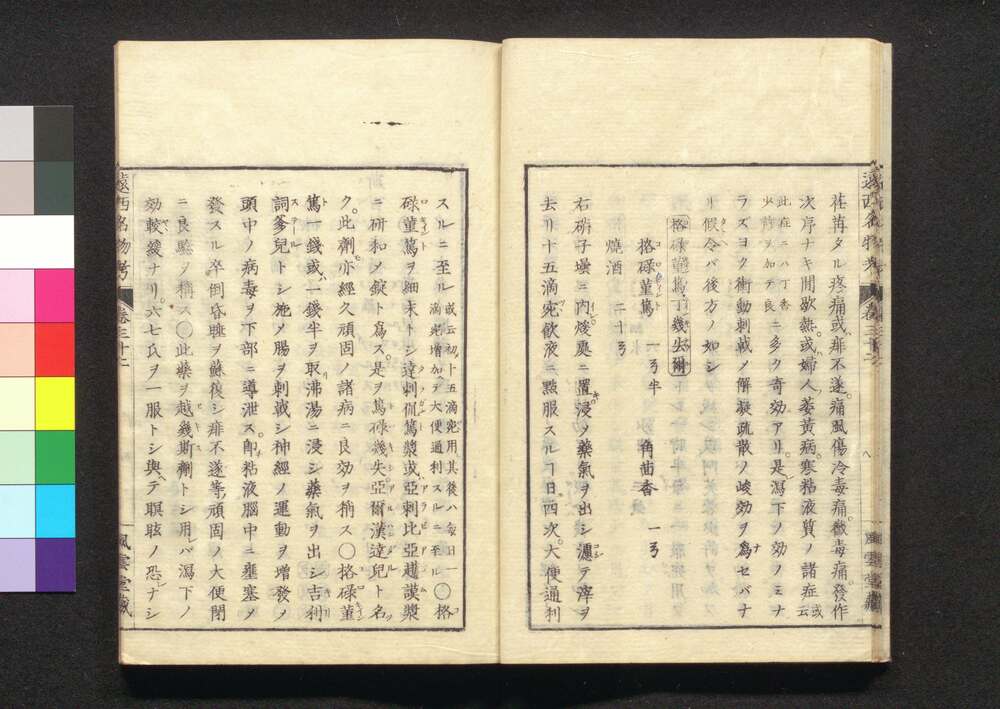 荏苒タル疼痛或痱不遂痛風傷冷毒痛黴毒痛發作
次序ナキ間歇熱或婦人萎黄病寒粘液質ノ諸症或云
此症ニハ丁香少許ヲ加テ良ニ多ク奇効アリ是瀉下ノ効ノミナ
ラズヨク衝動刺戟ノ解凝疏散ノ峻効ヲ爲セバナ
リ假令バ後方ノ如シ
格碌菫篤丁幾失爾
格碌菫篤 一弓半 角茴香 一弓
燒酒 二十弓
右硝子壜ニ内煖處ニ置浸ソ藥氣ヲ出シ漉テ滓ヲ
去リ十五滴宛飲液ニ點服スルヿ日四次大便通利
スルニ至ル或云初ハ十五滴宛用其後ハ每日一滴宛増加テ大便通利スルニ至ル〇格
碌菫篤ヲ細末トシ達刺侃篤漿或亞刺比亞護謨漿
ニ研和ソ錠ト爲ス是ヲ篤碌幾失亞爾漢達兒ト名
ク此劑亦經久頑固ノ諸病ニ良効ヲ稱ス〇格碌菫
篤一錢或一錢半ヲ取沸湯ニ浸シ藥氣ヲ出シ吉利
詞爹兒トシ施メ腸ヲ刺戟シ神經ノ運動ヲ増發ソ
頭中ノ病毒ヲ下部ニ導泄ス即粘液腦中ニ壅塞ソ
發スル卒倒昏睡ヲ蘇復シ痱不遂等頑固ノ大便閉
ニ良驗ヲ稱ス〇此藥ヲ越幾斯劑トシ用レバ瀉下ノ
効較緩ナリ六七氏ヲ一服トシ與テ瞑眩ノ恐ナシ
遠西名物考 卷三十二 風雲堂藏